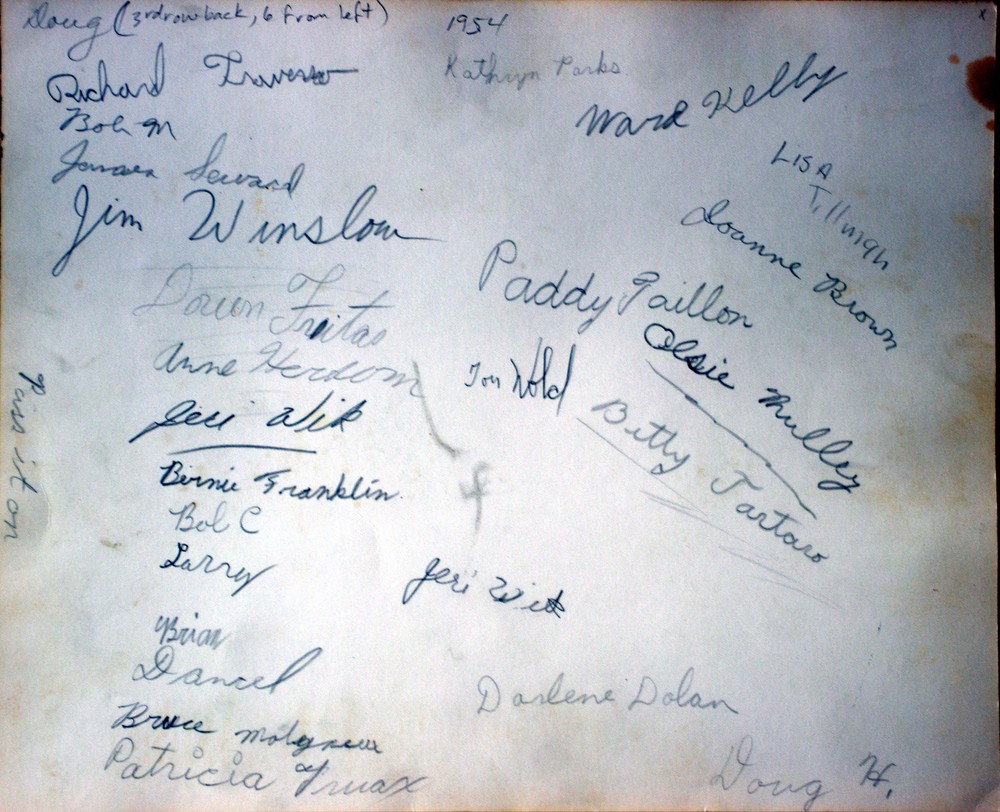 Doug (3rd row back, 6 from left)
1954
Kathryn Parks
Richard Traverso
Ward Kelly
Bob M
Lisa
Seward
Jim Winslow
Joanne Brown
Paddy Taillon
Freitas
Anne
Tom Wold
Elsie Mulley
Jeri Wik
Betty Tartaro
Pass it on
Bernie Franklin.
Bob C
Larry
Jeri Wik
Brian
Daniel
Darlene Dolan
Bruce
Patricia Truax
Doug H.